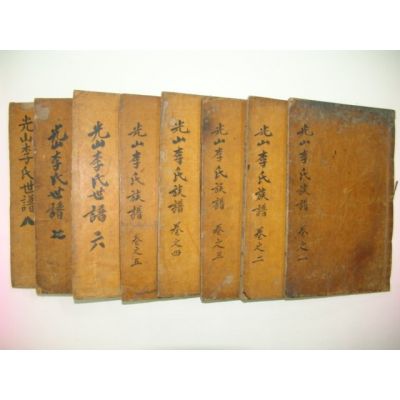 光山李氏族譜 卷之一
光山李氏族譜 卷之二
光山李氏族譜 卷之三
光山李氏族譜 卷之四
光山李氏族譜 卷之五
光山李氏世譜 六
光山李氏世譜 七
光山李氏世譜 八